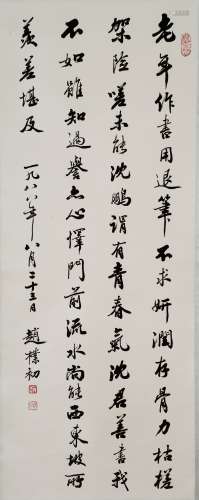 老年作書用退筆不求妍潤存骨力枯槎
架險嗟未能沈鵬謂有青春氣沈君善書我
不如雖知過譽亦心懌門前流水尚能西東坡所
羨差堪及 一九八八年八月二十三日 趙樸初